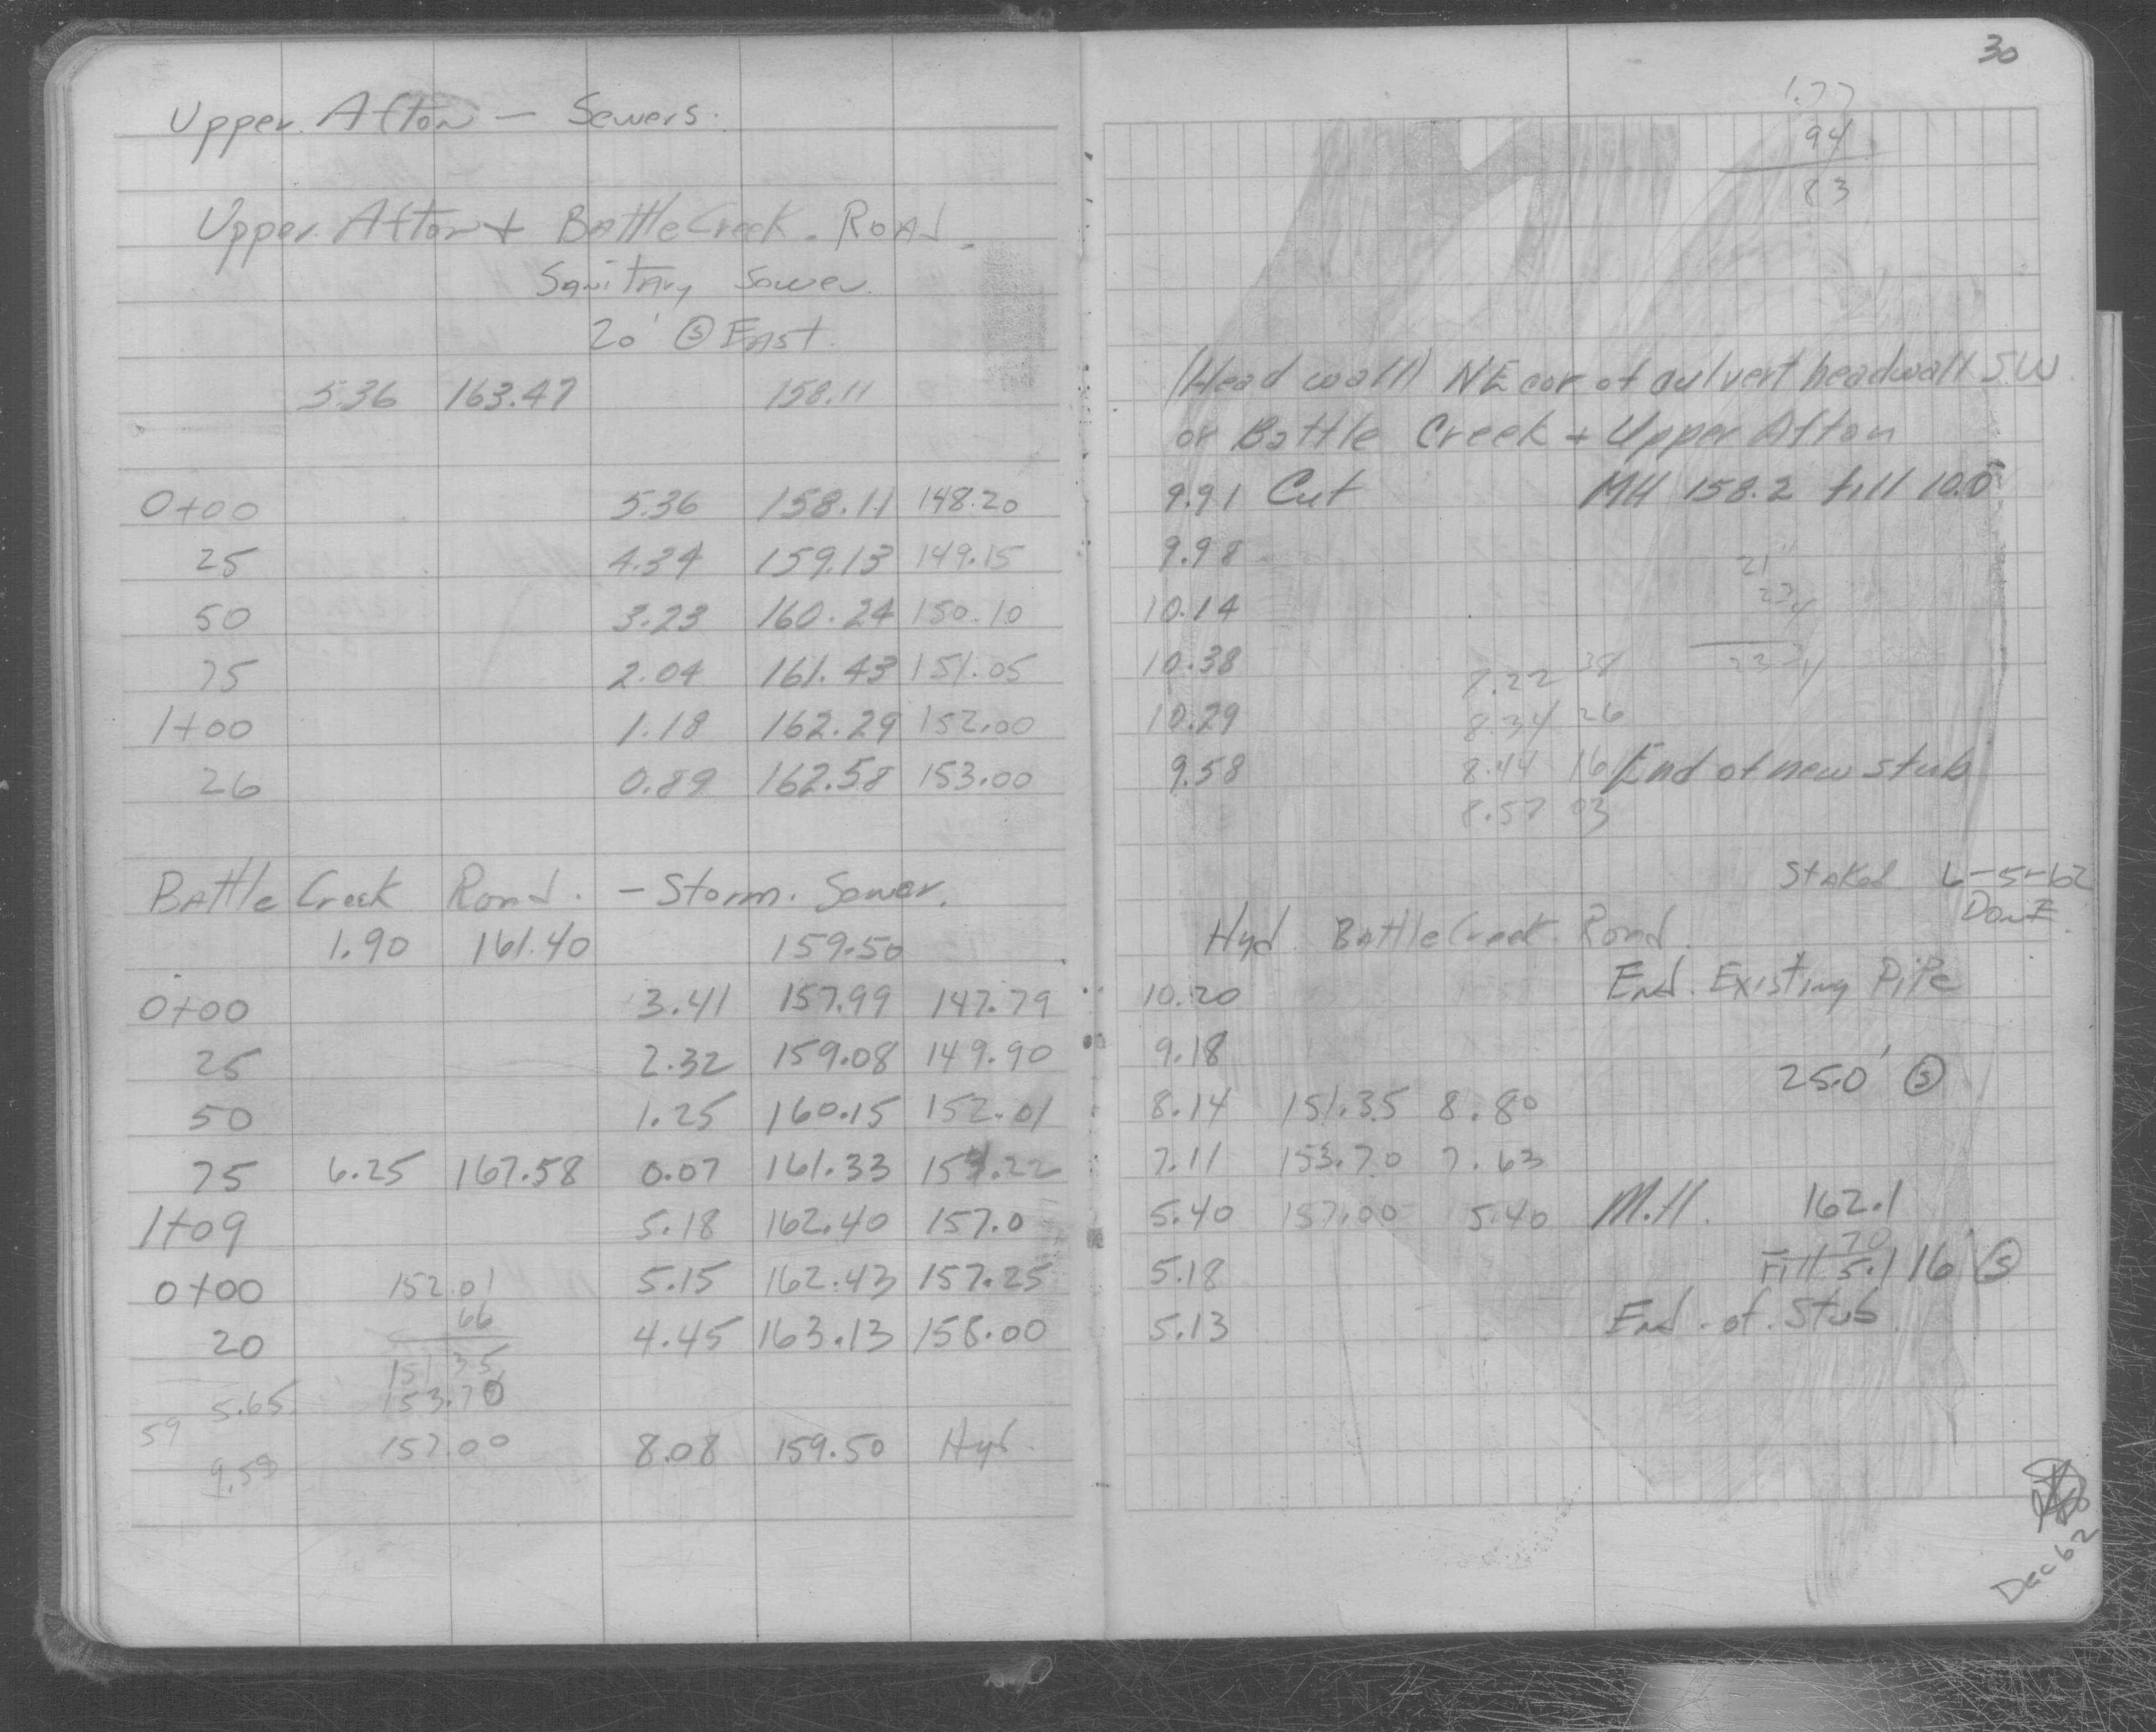 Upper Afton — Sewers.
Upper Afton + Battle Creek Road.
Sanitary Sewer
20' Ⓢ East.
5.36 163.47 158.11
0+00 5.36 158.11 148.20
25 4.34 159.13 149.15
50 3.23 160.24 150.10
75 2.04 161.43 151.05
1+00 1.18 162.29 152.00
26 0.89 162.58 153.00
Battle Creek Road. — Storm. Sewer.
1.90 161.40 159.50
0+00 3.41 157.99 147.79
25 2.32 159.08 149.90
50 1.25 160.15 152.01
75 6.25 167.58 0.07 161.33 154.22
1+09 5.18 162.40 157.0
0+00 152.01 5.15 162.43 157.25
66
20 4.45 163.13 158.00
151.35
5.65 153.70
59 157.00 8.08 159.50 Hyd.
9.59
30
1.77
94
83
(Head wall) NE cor of culvert headwall SW
or Battle Creek + Upper Afton
9.91 Cut MH 158.2 fill 10.0
9.98 21
10.14
10.38 38
10.29 8.34 26
9.58 8.44 16 End of new stub
8.57 03
Staked 6-5-62
Don E.
Hyd. Battle Creek Road.
10.20 End. Existing Pipe
9.18 25.0' Ⓢ
8.14 151.35 8.80
7.11 153.70 7.63
5.40 157.00 5.40 M.H. 162.1
70
5.18 Fill 5.1 16' Ⓢ
5.13 End. of. Stub
Dec 62